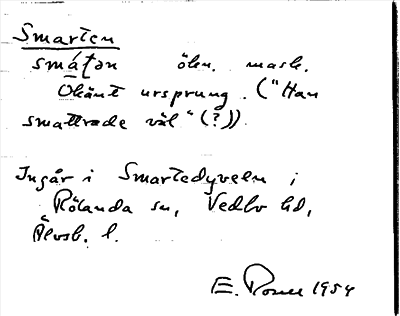 Smarten
smáṭən ökn. mask.
Okänt ursprung. ("Han
smattrade väl" (?)).
Ingår i Smartedyveln i
Rölanda sn, Vedbo hd,
Älvsb. l.
E. 1954